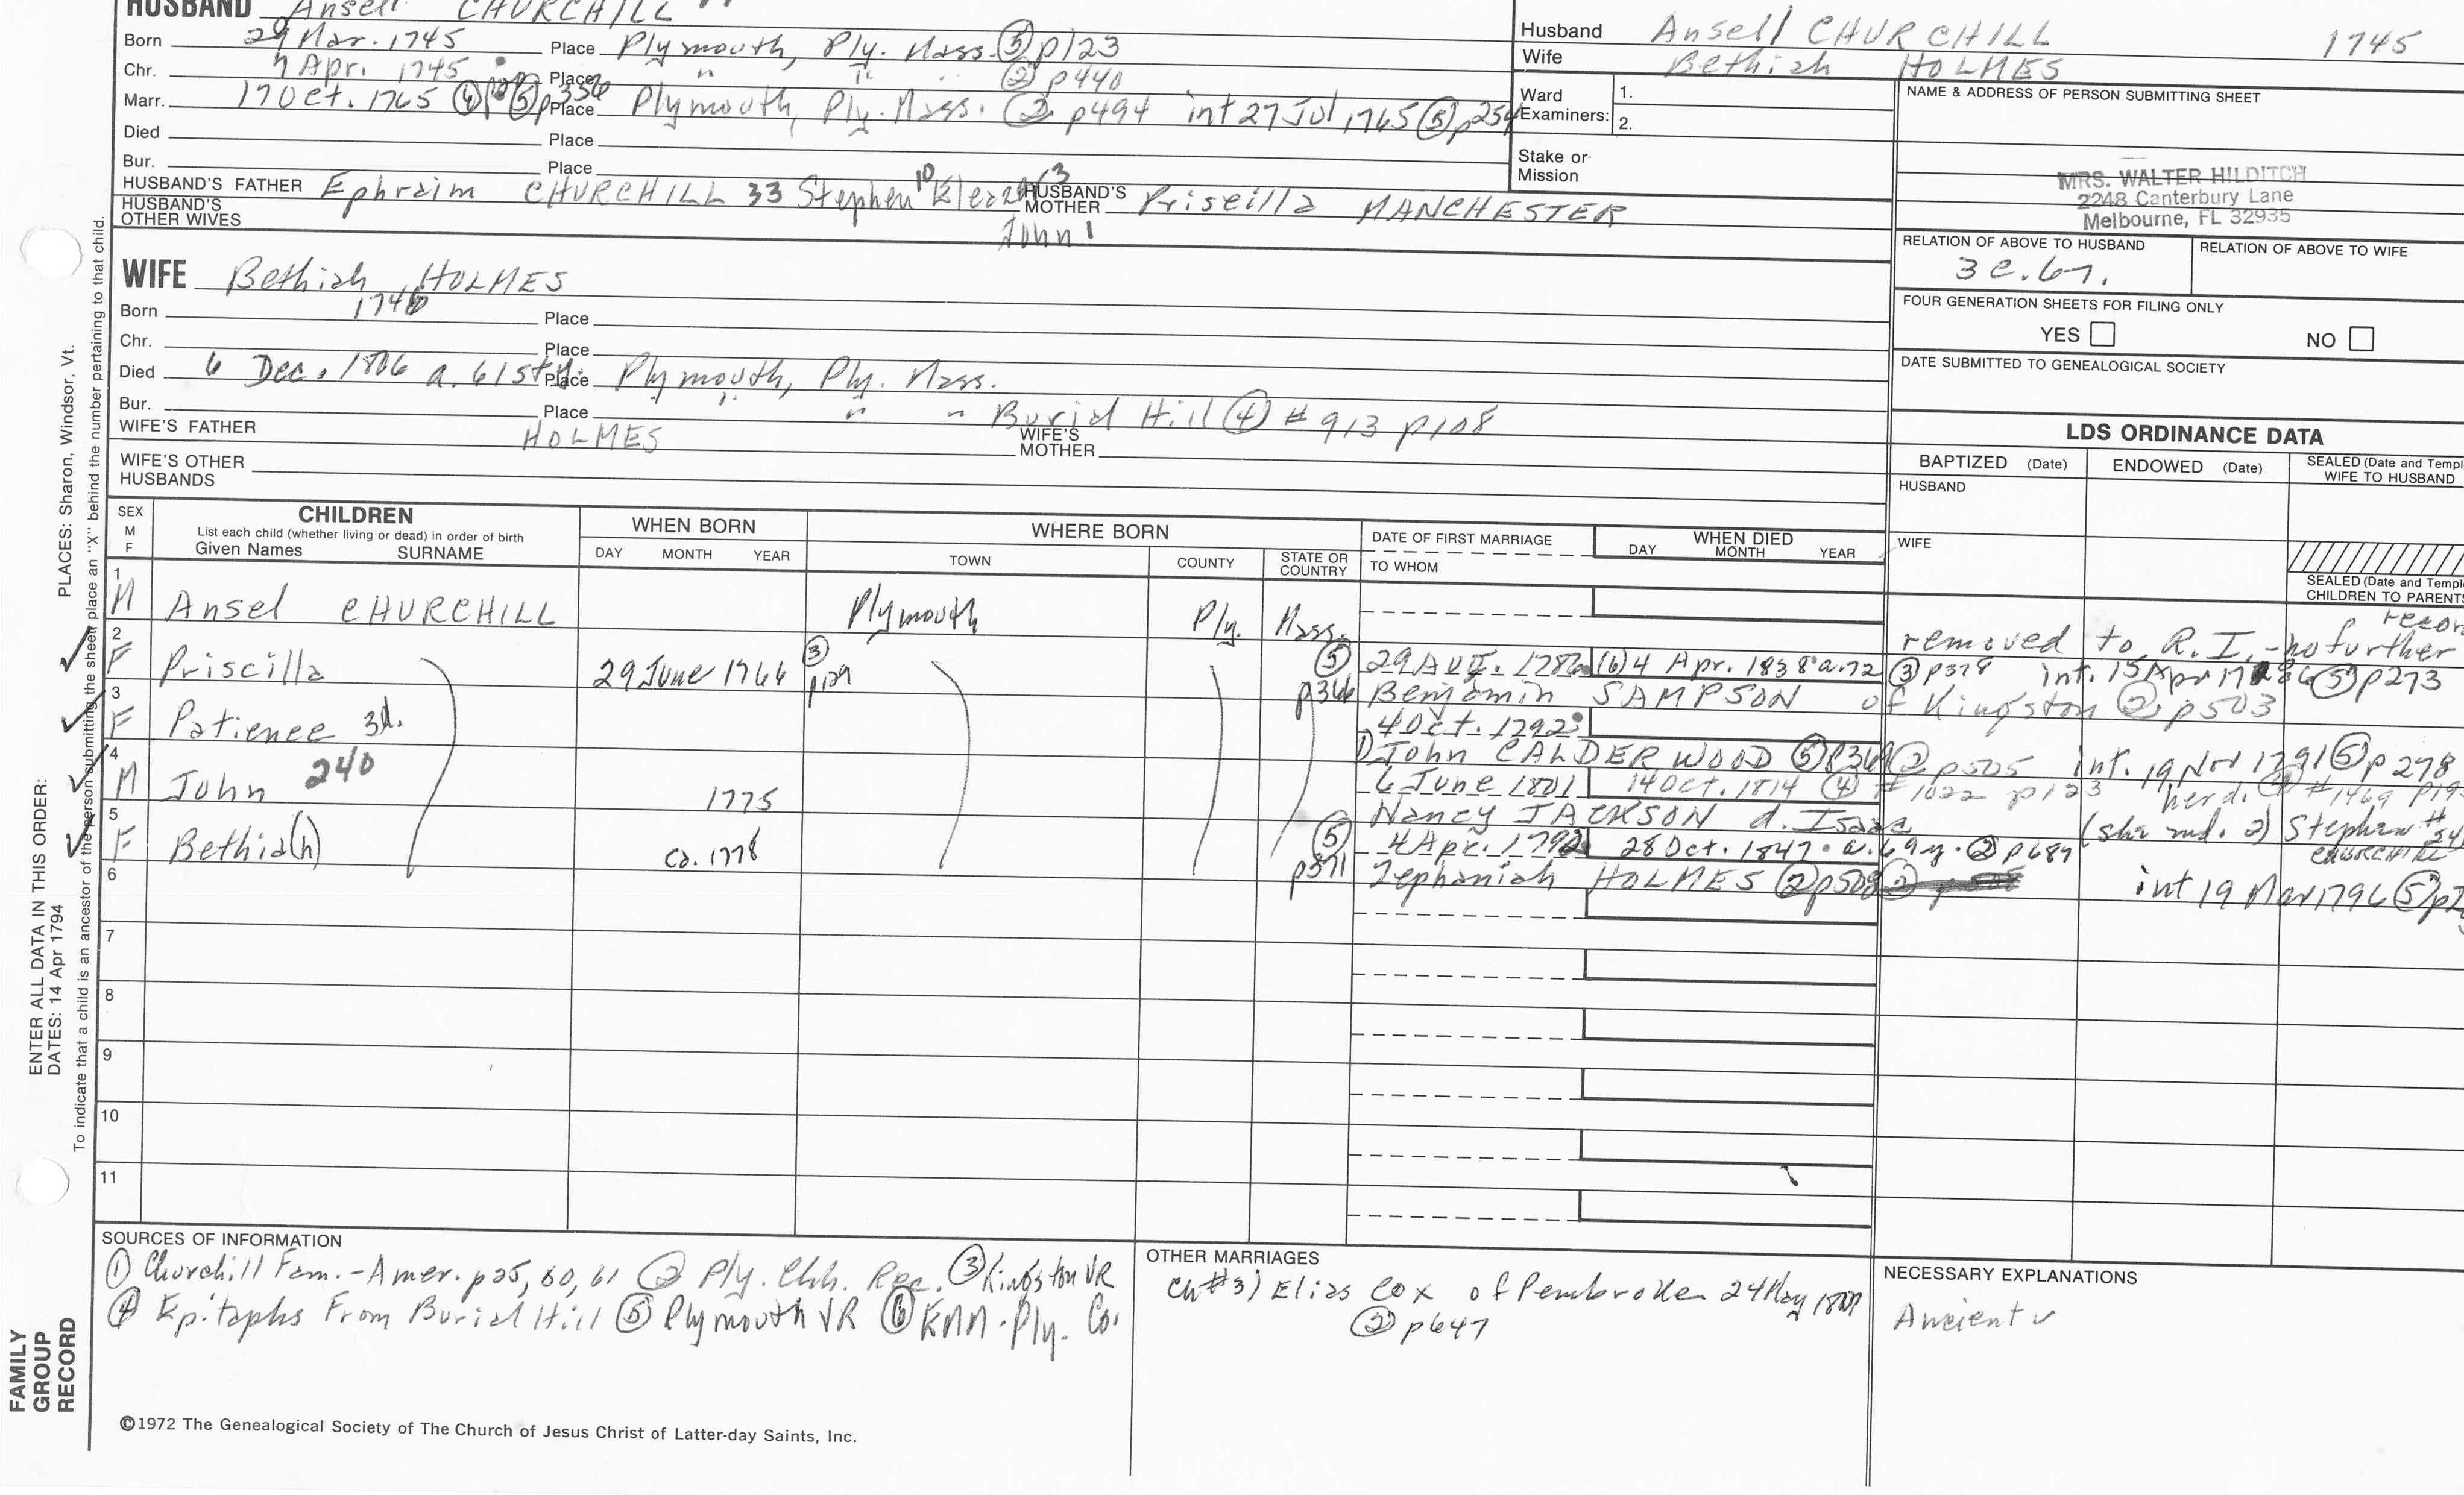 HUSBAND Ansell CHURCHILL
Born 29 Mar. 1745 Place Plymouth, Ply. Mass. ⑤ p123
Chr. 7 Apr. 1745 Place " " " ② p440
Marr. 17 Oct. 1765 ④ ⑤ p356 Place Plymouth, Ply. Mass. ② p494 int 27 Jul 1765 ⑤ p254
Died Place
Bur. Place
HUSBAND'S FATHER Ephraim CHURCHILL 33 Stephen 10 3 HUSBAND'S MOTHER Priscilla MANCHESTER
HUSBAND'S OTHER WIVES
John 1
Husband Ansell CHURCHILL 1745
Wife Bethiah HOLMES
Ward Examiners: 1.
2.
Stake or Mission
NAME & ADDRESS OF PERSON SUBMITTING SHEET
MRS. WALTER HILDITCH
2248 Canterbury Lane
Melbourne, FL 32935
RELATION OF ABOVE TO HUSBAND
RELATION OF ABOVE TO WIFE
FOUR GENERATION SHEETS FOR FILING ONLY
YES NO
DATE SUBMITTED TO GENEALOGICAL SOCIETY
WIFE Bethiah HOLMES
Born Place
Chr. Place
Died 6 Dec. 1806 a. 61st Place Plymouth, Ply. Mass.
Bur. Place " " " Burial Hill ④ # 913 p108
WIFE'S FATHER HOLMES WIFE'S MOTHER
WIFE'S OTHER HUSBANDS
LDS ORDINANCE DATA
BAPTIZED (Date) ENDOWED (Date) SEALED (Date and Templ
WIFE TO HUSBAND
HUSBAND
WIFE
SEALED (Date and Templ
CHILDREN TO PARENTS
SEX M F
CHILDREN
List each child (whether living or dead) in order of birth
Given Names SURNAME
WHEN BORN
DAY MONTH YEAR
WHERE BORN
TOWN COUNTY STATE OR COUNTRY
DATE OF FIRST MARRIAGE
TO WHOM
WHEN DIED
DAY MONTH YEAR
1 M Ansel CHURCHILL Plymouth Ply. Mass. removed to R.I. - no further recor
2 F Priscilla 29 June 1766 ③ p129 ⑤ p366 29 Aug. 1786 (6) 4 Apr. 1838 a. 72 ③ p378 int. 15 Apr 1786 ⑤ p273
Benjamin SAMPSON of Kingston ② p503
3 F Patience 3d. 4 Oct. 1792
1) John CALDERWOOD ⑤ p369 ② p505 int. 19 Nov 1791 ⑤ p278
4 M John 240 1775 6 June 1801 14 Oct. 1814 ④ # 1022 p123 her d. ④ #1469 p19
Nancy JACKSON d. Isaac (she md. 2) Stephen # CHURCHILL
5 F Bethia(h) ca. 1778 ⑤ p371 4 Apr. 1792 28 Oct. 1847 a. 69 y. ② p689
Zephaniah HOLMES ② p508 int 19 Mar 1796 ⑤
6
7
8
9
10
11
SOURCES OF INFORMATION
① Churchill Fam. - Amer. p25, 60, 61 ② Ply. Chh. Rec. ③ Kingston VR
④ Epitaphs From Burial Hill ⑤ Plymouth VR ⑥ Ply. Co.
OTHER MARRIAGES
Ch #3) Elias Cox of Pembroke 24 May
② p647
NECESSARY EXPLANATIONS
Ancient
©1972 The Genealogical Society of The Church of Jesus Christ of Latter-day Saints, Inc.
FAMILY
GROUP
RECORD
ENTER ALL DATA IN THIS ORDER:
DATES: 14 Apr 1794
PLACES: Sharon, Windsor, Vt.
To indicate that a child is an ancestor of the person submitting the sheet place an "X" behind the number pertaining to that child.